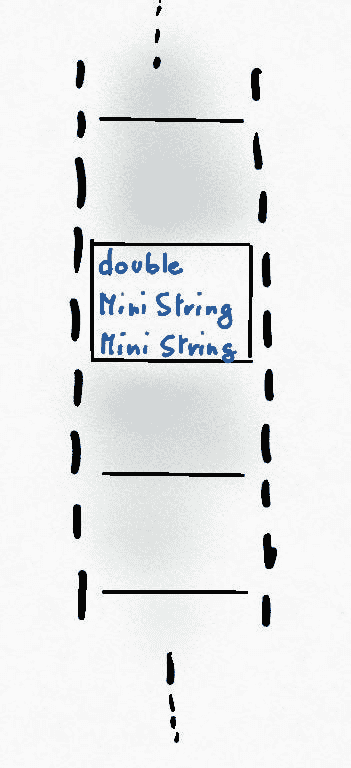 double
Mini String
Mini String